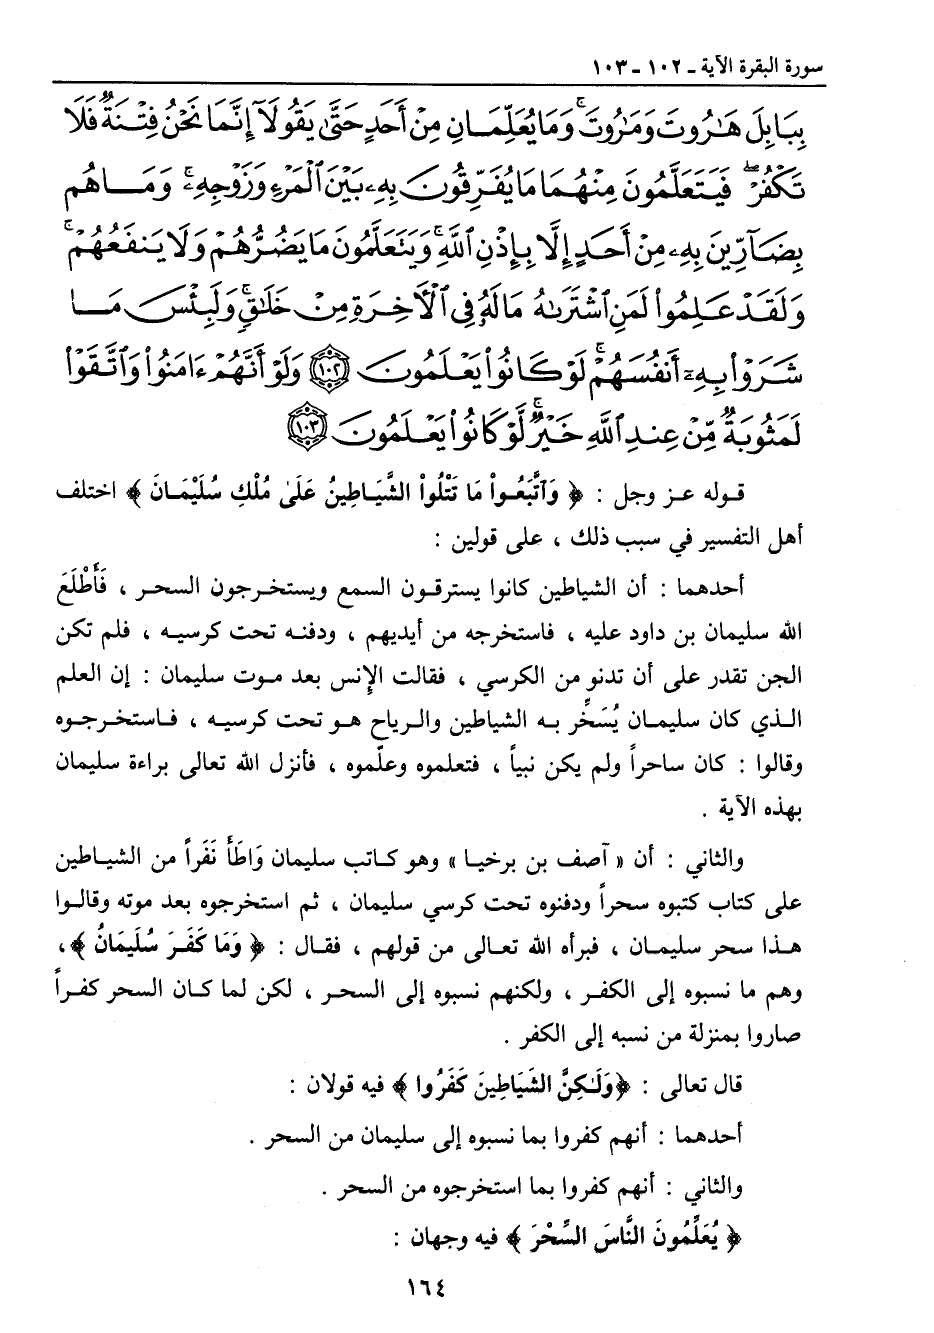 سورة البقرة الآية ـ ١٠٢ ـ ١٠٣
بِبَابِلَ هَٰرُوتَ وَمَٰرُوتَۚ وَمَا يُعَلِّمَانِ مِنْ أَحَدٍ حَتَّىٰ يَقُولَآ إِنَّمَا نَحْنُ فِتْنَةٌ فَلَا
تَكْفُرْۖ فَيَتَعَلَّمُونَ مِنْهُمَا مَا يُفَرِّقُونَ بِهِۦ بَيْنَ ٱلْمَرْءِ وَزَوْجِهِۦۚ وَمَا هُم
بِضَآرِّينَ بِهِۦ مِنْ أَحَدٍ إِلَّا بِإِذْنِ ٱللَّهِۚ وَيَتَعَلَّمُونَ مَا يَضُرُّهُمْ وَلَا يَنفَعُهُمْۚ
وَلَقَدْ عَلِمُوا۟ لَمَنِ ٱشْتَرَىٰهُ مَا لَهُۥ فِى ٱلْأَخِرَةِ مِنْ خَلَٰقٍۚ وَلَبِئْسَ مَا
شَرَوْا۟ بِهِۦٓ أَنفُسَهُمْۚ لَوْ كَانُوا۟ يَعْلَمُونَ ١٠٢ وَلَوْ أَنَّهُمْ ءَامَنُوا۟ وَٱتَّقَوْا۟
لَمَثُوبَةٌ مِّنْ عِندِ ٱللَّهِ خَيْرٌۚ لَّوْ كَانُوا۟ يَعْلَمُونَ ١٠٣
قوله عز وجل : ﴿ وَٱتَّبَعُواْ مَا تَتْلُواْ الشَّيَاطِينُ عَلَىٰ مُلْكِ سُلَيْمَانَ ﴾ اختلف
أهل التفسير في سبب ذلك ، على قولين :
أحدهما : أن الشياطين كانوا يسترقون السمع ويستخرجون السحر ، فَأَطْلَعَ
الله سليمان بن داود عليه ، فاستخرجه من أيديهم ، ودفنه تحت كرسيه ، فلم تكن
الجن تقدر على أن تدنو من الكرسي ، فقالت الإنس بعد موت سليمان : إن العلم
الذي كان سليمان يُسَخِّر به الشياطين والرياح هو تحت كرسيه ، فاستخرجوه
وقالوا : كان ساحراً ولم يكن نبياً ، فتعلموه وعلّموه ، فأنزل الله تعالى براءة سليمان
بهذه الآية .
والثاني : أن « آصف بن برخيا » وهو كاتب سليمان وَاطَأَ نَفَراً من الشياطين
على كتاب كتبوه سحراً ودفنوه تحت كرسي سليمان ، ثم استخرجوه بعد موته وقالوا
هذا سحر سليمان ، فبرأه الله تعالى من قولهم ، فقال : ﴿ وَمَا كَفَرَ سُلَيْمَانُ ﴾ ،
وهم ما نسبوه إلى الكفر ، ولكنهم نسبوه إلى السحر ، لكن لما كان السحر كفراً
صاروا بمنزلة من نسبه إلى الكفر .
قال تعالى : ﴿وَلَٰكِنَّ الشَّيَاطِينَ كَفَرُوا ﴾ فيه قولان :
أحدهما : أنهم كفروا بما نسبوه إلى سليمان من السحر .
والثاني : أنهم كفروا بما استخرجوه من السحر .
﴿ يُعَلِّمُونَ النَّاسَ السِّحْرَ ﴾ فيه وجهان :
١٦٤